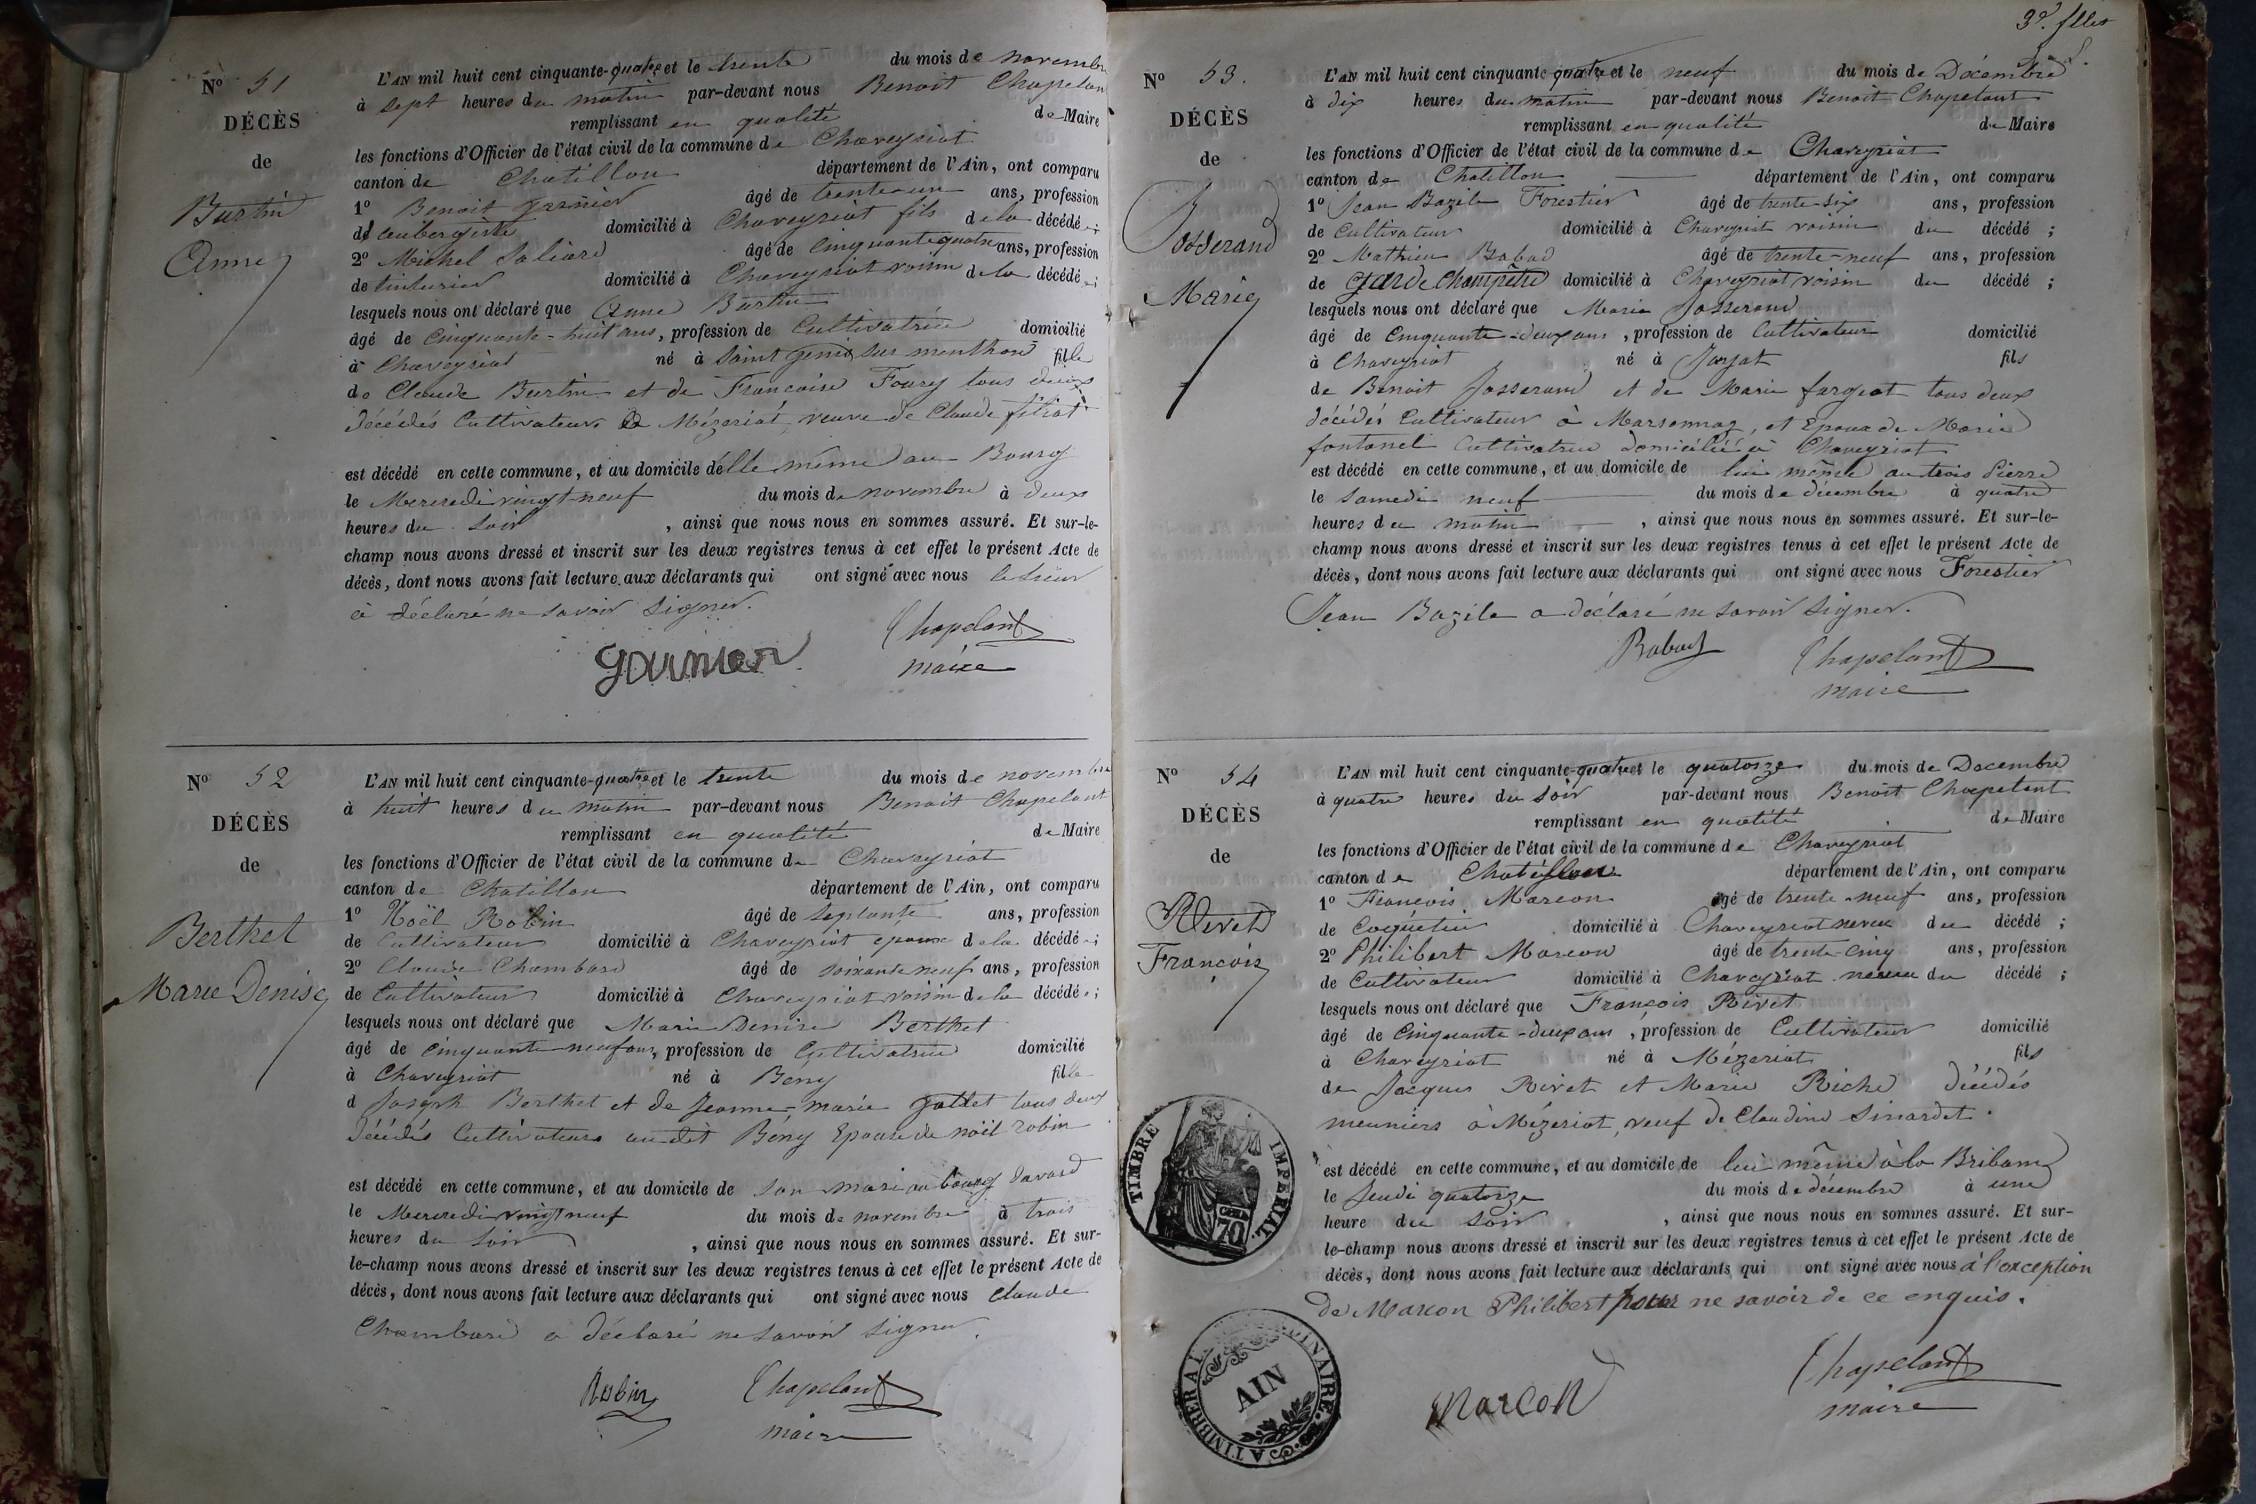 N° 51
DÉCÈS
de
Burtin
Anne
L'AN mil huit cent cinquante-quatre et le trente du mois de novembre
à sept heures du matin par-devant nous Benoit Chapelant
remplissant en qualité de Maire
les fonctions d'Officier de l'état civil de la commune de Chaveyriat
canton de Chatillon département de l'Ain, ont comparu
1° Benoit garnier âgé de trente-un ans, profession
de aubergiste domicilié à Chaveyriat fils de la décédée;
2° Michel Saliard âgé de cinquante quatre ans, profession
de tinturier domicilié à Chaveyriat voisin de la décédée;
lesquels nous ont déclaré que Anne Burtin
âgé de cinquante-huit ans, profession de Cultivatrice domicilié
à Chaveyriat né à Saint genis sur menthon fille
de Claude Burtin et de Francoise Foury tous deux
décédés Cultivateurs à Mézeriat, veuve de Claude filiat
est décédé en cette commune, et au domicile d'elle même au Bourg
le Mercredi vingt-neuf du mois de novembre à deux
heures du Soir, ainsi que nous nous en sommes assuré. Et sur-le-
champ nous avons dressé et inscrit sur les deux registres tenus à cet effet le présent Acte de
décès, dont nous avons fait lecture aux déclarants qui ont signé avec nous le sieur
a déclaré ne savoir signer.
Chapelant
maire
N° 52
DÉCÈS
de
Berthet
Marie Denise
L'AN mil huit cent cinquante-quatre et le trente du mois de novembre
à huit heures du matin par-devant nous Benoit Chapelant
remplissant en qualité de Maire
les fonctions d'Officier de l'état civil de la commune de Chaveyriat
canton de Chatillon département de l'Ain, ont comparu
1° Noël Robin âgé de septante ans, profession
de Cultivateur domicilié à Chaveyriat epoux de la décédée;
2° Claude Chambard âgé de soixante neuf ans, profession
de Cultivateur domicilié à Chaveyriat voisin de la décédée;
lesquels nous ont déclaré que Marie Denise Berthet
âgé de cinquante-neuf ans, profession de Cultivatrice domicilié
à Chaveyriat né à Bény fille
d Joseph Berthet et de Jeanne-marie gallet tous deux
décédés Cultivateurs au dit Bény Epouse de noël robin
est décédé en cette commune, et au domicile de son mari au bourg
le Mercredi vingt neuf du mois de novembre à trois
heures du soir, ainsi que nous nous en sommes assuré. Et sur-
le-champ nous avons dressé et inscrit sur les deux registres tenus à cet effet le présent Acte de
décès, dont nous avons fait lecture aux déclarants qui ont signé avec nous Claude
Chambard a déclaré ne savoir signer.
Robin Chapelant
maire
N° 53.
DÉCÈS
de
Josserand
Marie
L'AN mil huit cent cinquante quatre et le neuf du mois de Décembre
à dix heures du matin par-devant nous Benoit Chapelant
remplissant en qualité de Maire
les fonctions d'Officier de l'état civil de la commune de Chaveyriat
canton de Chatillon département de l'Ain, ont comparu
1° Jean Bazile Forestier âgé de trente-six ans, profession
de Cultivateur domicilié à Chaveyriat voisin du décédé;
2° Mathieu Babad âgé de trente-neuf ans, profession
de Garde Champêtre domicilié à Chaveyriat voisin du décédé;
lesquels nous ont déclaré que Marie Josserand
âgé de Cinquante-deux ans, profession de Cultivateur domicilié
à Chaveyriat né à Jayat fils
de Benoit Josserand et de Marie fargeat tous deux
décédés Cultivateur à Marsonnaz, et Epoux de Marie
fontanel Cultivatrice domiciliée à Chaveyriat
est décédé en cette commune, et au domicile de lui même au trois Pierre
le samedi neuf du mois de décembre à quatre
heures du matin, ainsi que nous nous en sommes assuré. Et sur-le-
champ nous avons dressé et inscrit sur les deux registres tenus à cet effet le présent Acte de
décès, dont nous avons fait lecture aux déclarants qui ont signé avec nous Forestier
Jean Bazile a déclaré ne savoir signer.
Babad Chapelant
maire
N° 54
DÉCÈS
de
Rivet
François
L'AN mil huit cent cinquante-quatre et le quatorze du mois de Decembre
à quatre heures du soir par-devant nous Benoit Chapelant
remplissant en qualité de Maire
les fonctions d'Officier de l'état civil de la commune de Chaveyriat
canton de Chatillon département de l'Ain, ont comparu
1° François Marcon âgé de trente-neuf ans, profession
de Coquetier domicilié à Chaveyriat neveu du décédé;
2° Philibert Marcon âgé de trente-cinq ans, profession
de Cultivateur domicilié à Chaveyriat neveu du décédé;
lesquels nous ont déclaré que François Rivet
âgé de Cinquante-deux ans, profession de Cultivateur domicilié
à Chaveyriat né à Mézeriat fils
de Jacques Rivet et Marie Riche décédés
meuniers à Mézeriat, veuf de Claudine Sinardet.
est décédé en cette commune, et au domicile de lui même à la
le Jeudi quatorze du mois de décembre à une
heure du soir, ainsi que nous nous en sommes assuré. Et sur-
le-champ nous avons dressé et inscrit sur les deux registres tenus à cet effet le présent Acte de
décès, dont nous avons fait lecture aux déclarants qui ont signé avec nous à l'exception
de Marcon Philibert pour ne savoir de ce enquis.
Marcon Chapelant
maire
TIMBRE IMPÉRIAL
70
AIN